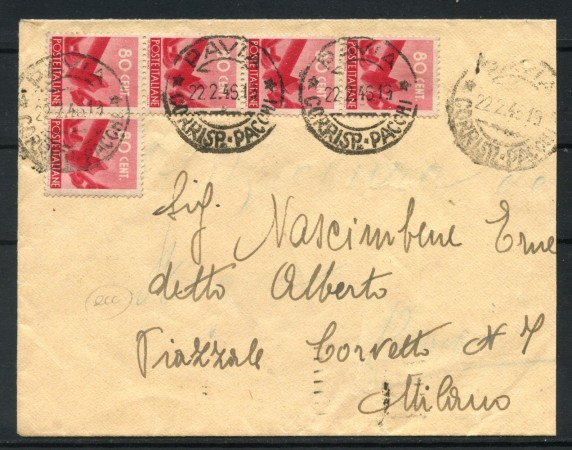 80 CENT. POSTE ITALIANE
80 CENT. POSTE ITALIANE
80 CENT. POSTE ITALIANE
80 CENT. POSTE ITALIANE
80 CENT. POSTE ITALIANE
PAVIA
22.2.46.19
CORRISP.-PACCHI
PAVIA
22.2.46.19
CORRISP.-PACCHI
PAVIA
22.2.46.19
CORRISP.-PACCHI
PAVIA
22.2.46.19
CORRISP.-PACCHI
Sig. Nascimbene Erme
detto Alberto
(ecc)
Piazzale Corvetto N 7
Milano